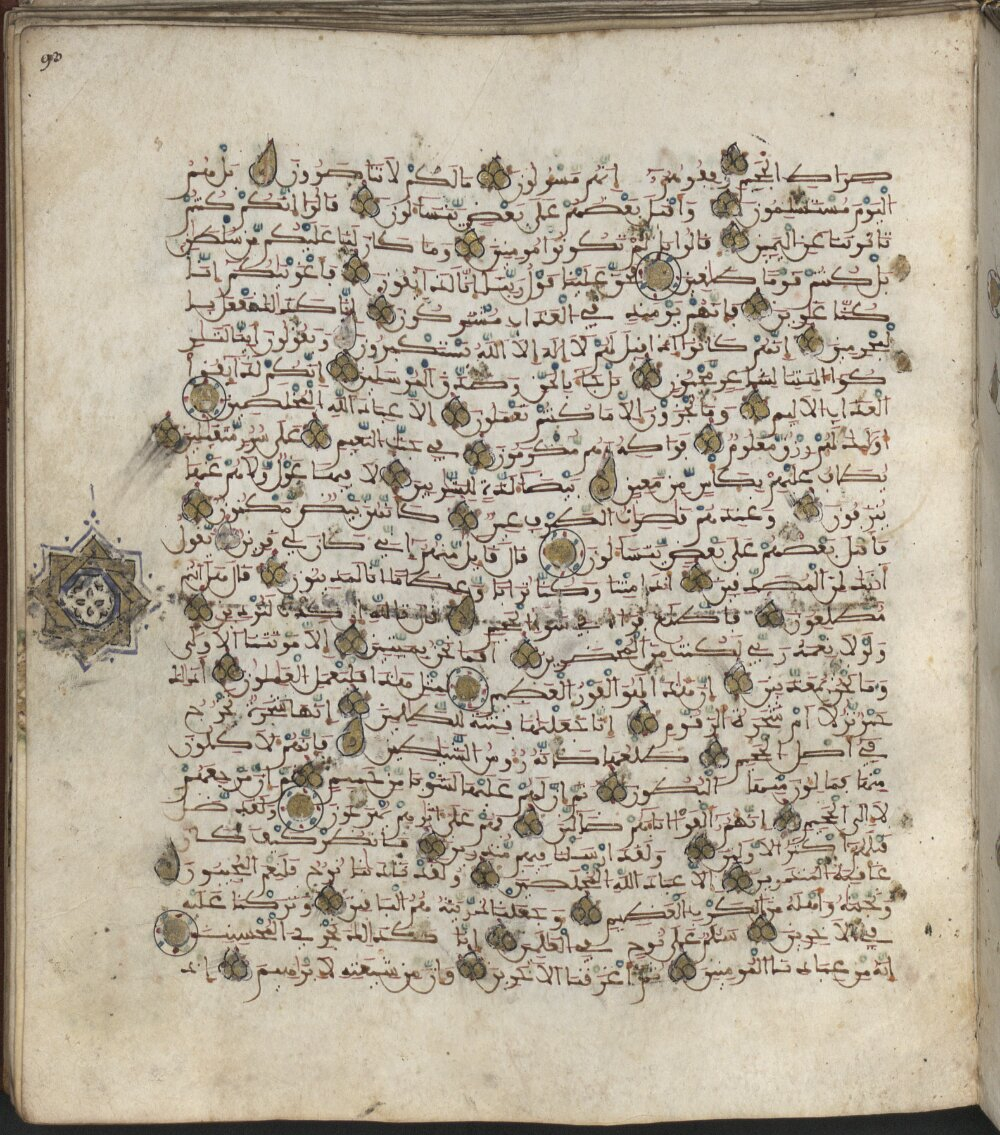 93
صراط الجحيم وقفوهم إنهم مسئولون مالكم لا تناصرون بل هم
اليوم مستسلمون وأقبل بعضهم على بعض يتساءلون قالوا إنكم كنتم
تاتوننا عن اليمين قالوا بل لم تكونوا مومنين وما كان لنا عليكم من سلطن
بل كنتم قوما طغين فحق علينا قول ربنا إنا لذائقون فأغوينكم إنا
كنا غوين فإنهم يومئذ في العذاب مشتركون إنا كذلك نفعل با
لمجرمين إنهم كانوا إذا قيل لهم لا إله إلا الله يستكبرون ويقولون أئنا لتار
كوا الهتنا لشاعر مجنون بل جا بالحق وصدق المرسلين إنكم لذائقوا
العذاب الاليم وما تجزون إلا ما كنتم تعملون إلا عباد الله المخلصين
أولئك لهم رزق معلوم فواكه وهم مكرمون في جنت النعيم على سرر متقبلين
يطاف عليهم بكأس من معين بيضا لذة للشربين لا فيها غول ولا هم عنها
ينزفون وعندهم قصرت الطرف عين كأنهن بيض مكنون
فأقبل بعضهم على بعض يتساءلون قال قائل منهم إني كان لي قرين يقول
أئنك لمن المصدقين أئذا متنا وكنا ترابا وعظاما إنا لمدينون قال هل أنتم
مطلعون فاطلع فرءاه في سوا الجحيم قال تالله إن كدت لتردين
ولولا نعمة ربي لكنت من المحضرين أفما نحن بميتين إلا موتتنا الاولى
وما نحن بمعذبين إن هذا لهو الفوز العظيم لمثل هذا فليعمل العملون أذلك
خير نزلا أم شجرة الزقوم إنا جعلنها فتنة للظلمين إنها شجرة تخرج
في أصل الجحيم طلعها كأنه رءوس الشيطين فإنهم لاكلون
منها فمالون منها البطون ثم إن لهم عليها لشوبا من حميم ثم إن مرجعهم
لإلى الجحيم إنهم ألفوا اباهم ضالين فهم على اثرهم يهرعون ولقد ضل
قبلهم أكثر الاولين ولقد أرسلنا فيهم منذرين فانظر كيف كان
عاقبة المنذرين إلا عباد الله المخلصين ولقد نادينا نوح فلنعم المجيبون
ونجينه وأهله من الكرب العظيم وجعلنا ذريته هم الباقين وتركنا عليه
في الاخرين سلم على نوح في العلمين إنا كذلك نجزي المحسنين
إنه من عبادنا المومنين ثم أغرقنا الاخرين وإن من شيعته لإبرهيم إذ